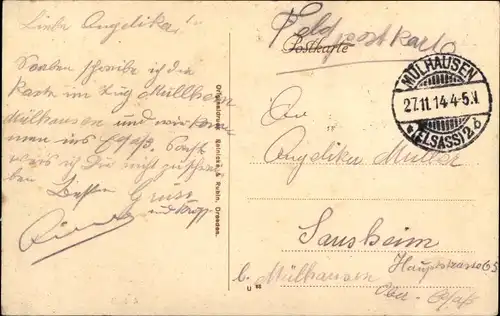 Liebe Angelika!
Soeben schreibe ich die
Karte im Zug Müllheim
Mülhausen und wir kom
men ins Elsaß. Sonst
weis ich Dir nicht zu schrei
ben Besten Gruss
und
Feldpostkarte
Postkarte
MÜLHAUSEN
27.11.14.4-5.N
* (ELSASS) 2 d
An
Angelika Müller
Sausheim
Hauptstrasse 65
b. Mülhausen
Ober-Elsaß
Originaldruck Reinicke & Rubin, Dresden.